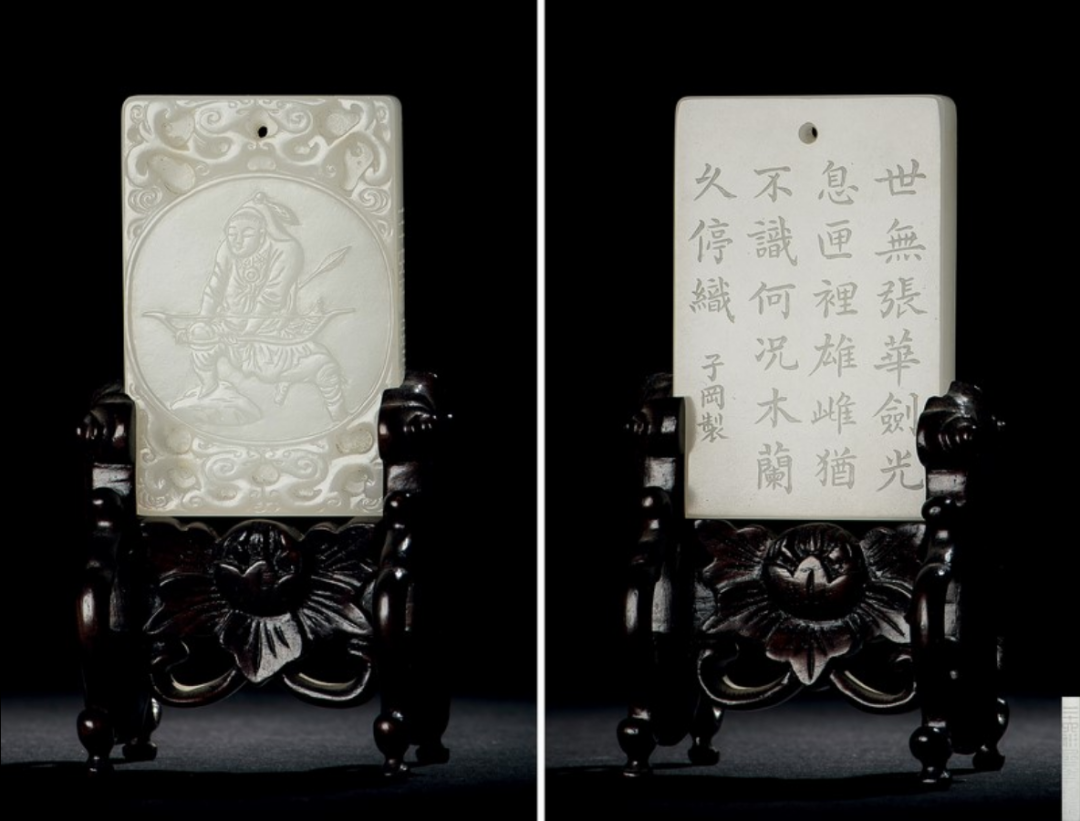 世無張華劍光
息匣裡雄雌猶
不識何况木蘭
久停織
子岡製